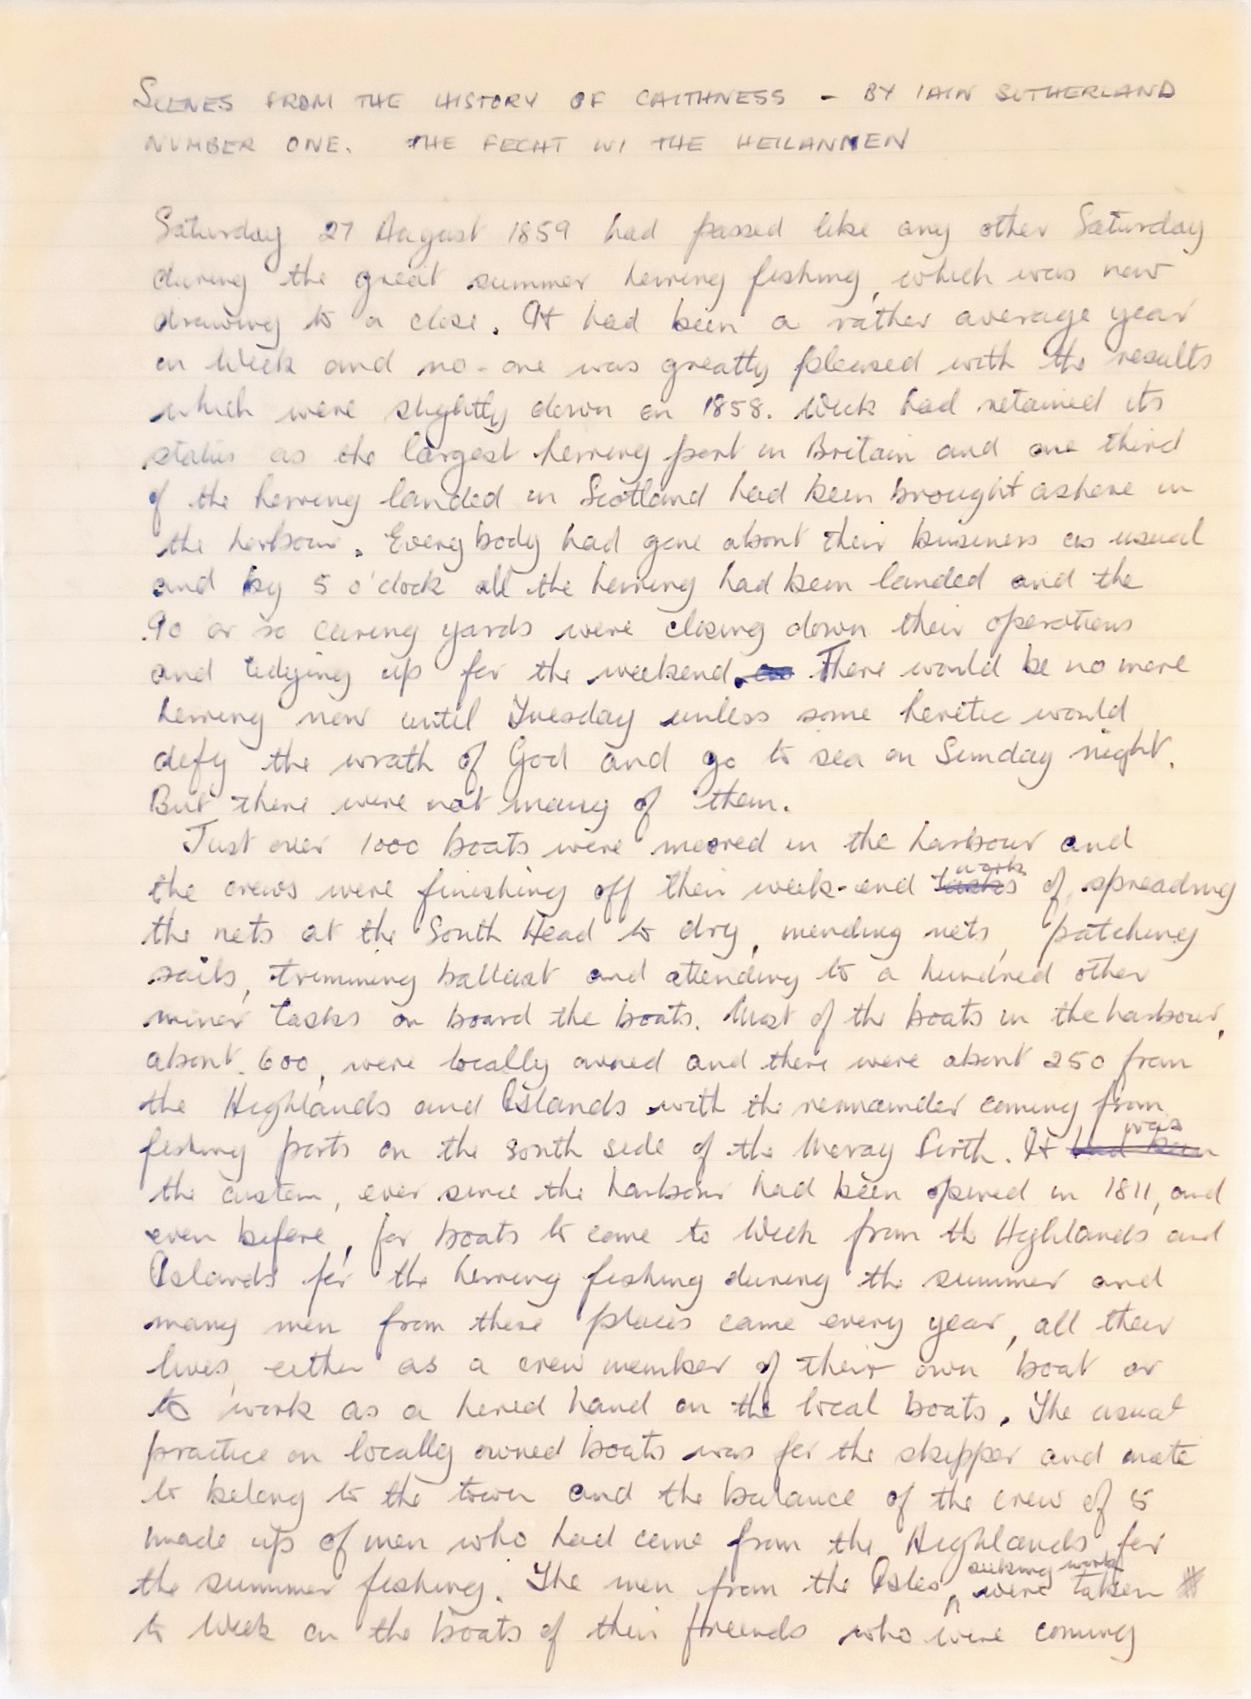 SCENES FROM THE HISTORY OF CAITHNESS - BY IAIN SUTHERLAND
NUMBER ONE. THE FECHT WI THE HEILANMEN
Saturday 27 August 1859 had passed like any other Saturday
during the great summer herring fishing, which was now
drawing to a close. It had been a rather average year
in Wick and no-one was greatly pleased with the results
which were slightly down on 1858. Wick had retained its
status as the largest herring port in Britain and one third
of the herring landed in Scotland had been brought ashore in
the harbour. Everybody had gone about their business as usual
and by 5 o'clock all the herring had been landed and the
90 or so curing yards were closing down their operations
and tidying up for the weekend. There would be no more
herring now until Tuesday unless some heretic would
defy the wrath of God and go to sea on Sunday night.
But there were not many of them.
Just over 1000 boats were moored in the harbour and
the crews were finishing off their week-end tasks work of spreading
the nets at the South Head to dry, mending nets, patching
sails, trimming ballast and attending to a hundred other
minor tasks on board the boats. Most of the boats in the harbour,
about 600, were locally owned and there were about 250 from
the Highlands and Islands with the remainder coming from
fishing ports on the south side of the Moray Firth. It had been was
the custom, ever since the harbour had been opened in 1811, and
even before, for boats to come to Wick from the Highlands and
Islands for the herring fishing during the summer and
many men from these places came every year, all their
lives, either as a crew member of their own boat or
to work as a hired hand on the local boats. The usual
practice on locally owned boats was for the skipper and mate
to belong to the town and the balance of the crew of 5
made up of men who had come from the Highlands for
the summer fishing. The men from the Isles seeking work were taken
to Wick on the boats of their friends who were coming